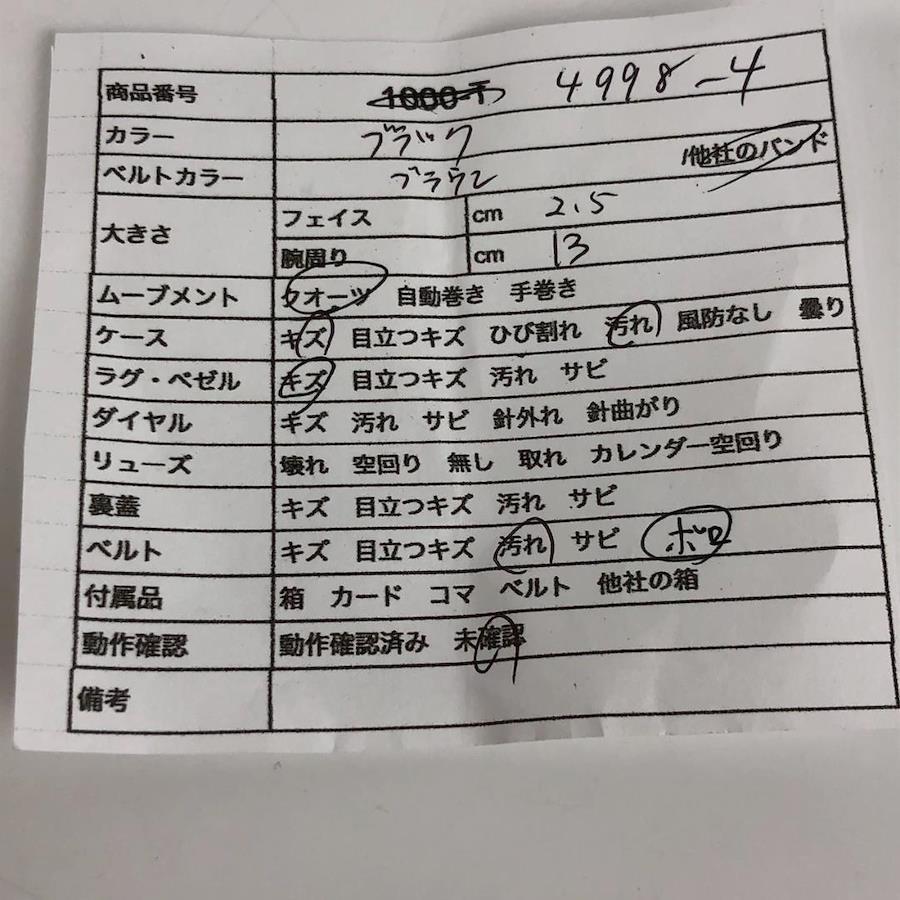 商品番号 1000-T 4998-4
カラー ブラック
ベルトカラー ブラウン /他社のバンド
大きさ フェイス cm 2.5
腕周り cm 13
ムーブメント クオーツ 自動巻き 手巻き
ケース キズ 目立つキズ ひび割れ 汚れ 風防なし 曇り
ラグ・ベゼル キズ 目立つキズ 汚れ サビ
ダイヤル キズ 汚れ サビ 針外れ 針曲がり
リューズ 壊れ 空回り 無し 取れ カレンダー空回り
裏蓋 キズ 目立つキズ 汚れ サビ
ベルト キズ 目立つキズ 汚れ サビ ボロ
付属品 箱 カード コマ ベルト 他社の箱
動作確認 動作確認済み 未確認
備考